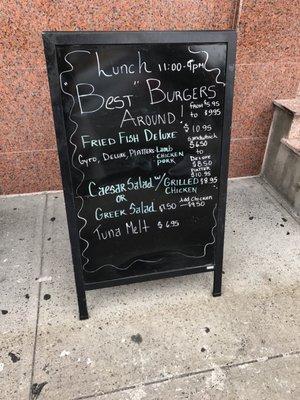 Lunch 11:00-9pm
Best "Burgers
Around!
from $5.95
to $9.95
Fried Fish Deluxe $10.95
Gyro, Deluxe, Platters Lamb
Chicken
Pork
Sandwich
$6.50
to
Deluxe
$8.50
Platter
$10.95
Caesar Salad w/Grilled $8.95
Chicken
or
Greek Salad $7.50 Add Chicken
$9.50
Tuna Melt $6.95